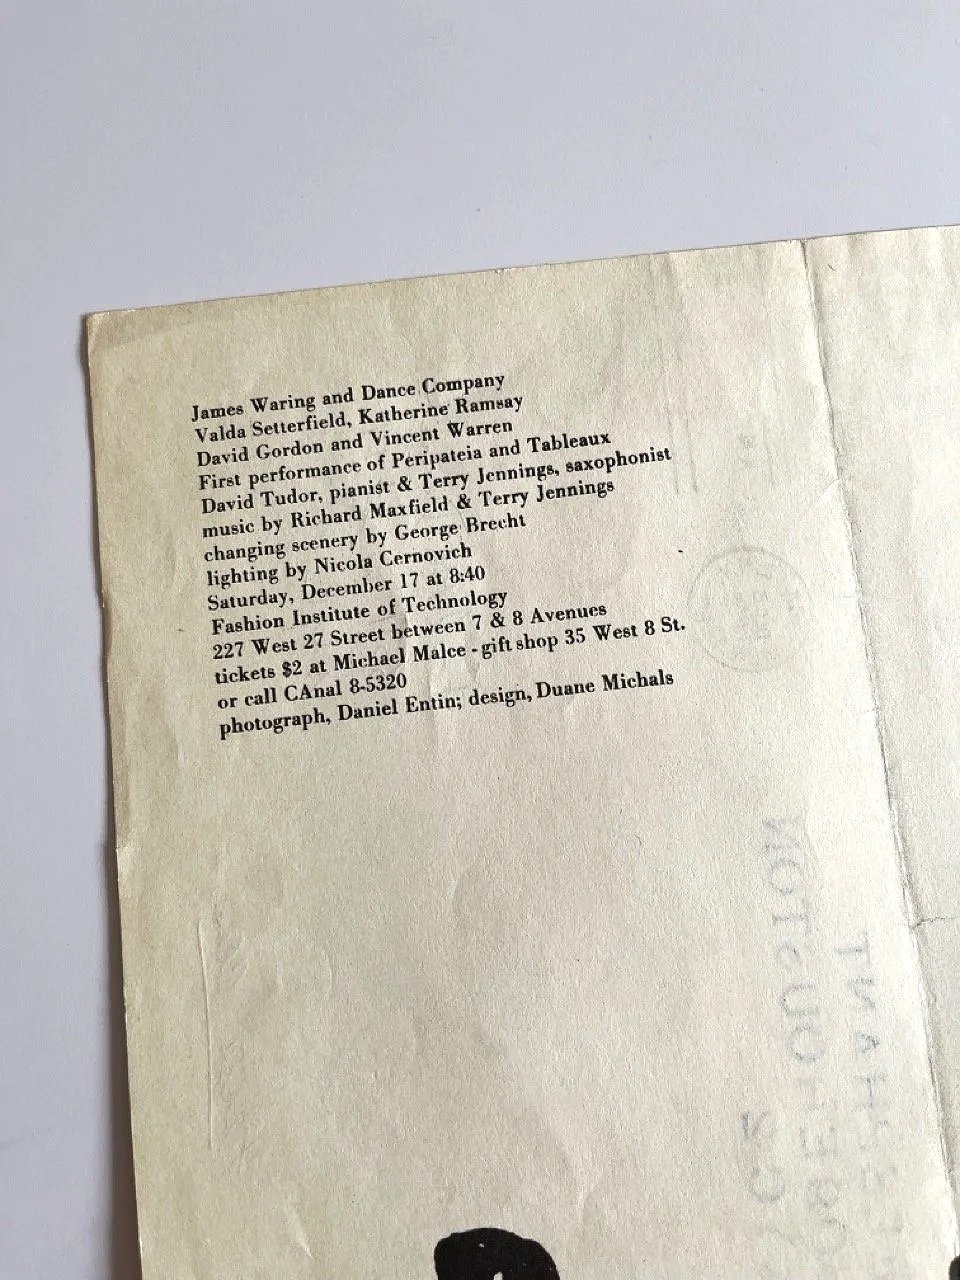 James Waring and Dance Company
Valda Setterfield, Katherine Ramsay
David Gordon and Vincent Warren
First performance of Peripateia and Tableaux
David Tudor, pianist & Terry Jennings, saxophonist
music by Richard Maxfield & Terry Jennings
changing scenery by George Brecht
lighting by Nicola Cernovich
Saturday, December 17 at 8:40
Fashion Institute of Technology
227 West 27 Street between 7 & 8 Avenues
tickets $2 at Michael Malce - gift shop 35 West 8 St.
or call CAnal 8-5320
photograph, Daniel Entin; design, Duane Michals